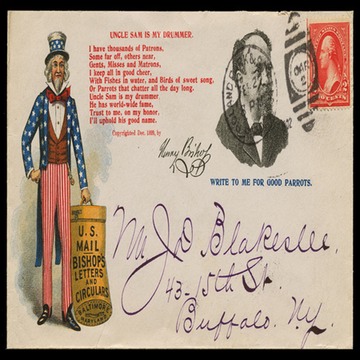 UNCLE SAM IS MY DRUMMER.
I have thousands of Patrons,
Some far off, others near,
Gents, Misses and Matrons,
I keep all in good cheer,
With Fishes in water, and Birds of sweet song,
Or Parrots that chatter all the day long.
Uncle Sam is my drummer
He has world-wide fame,
Trust to me, on my honor,
I'll uphold his good name.
Henry Bishop
WRITE TO ME FOR GOOD PARROTS.
U.S.
MAIL
BISHOP'S
LETTERS
AND
CIRCULARS
BALTIMORE
MARYLAND
Mr J D Blakeslee.
43-15th St.
Buffalo. N.Y.